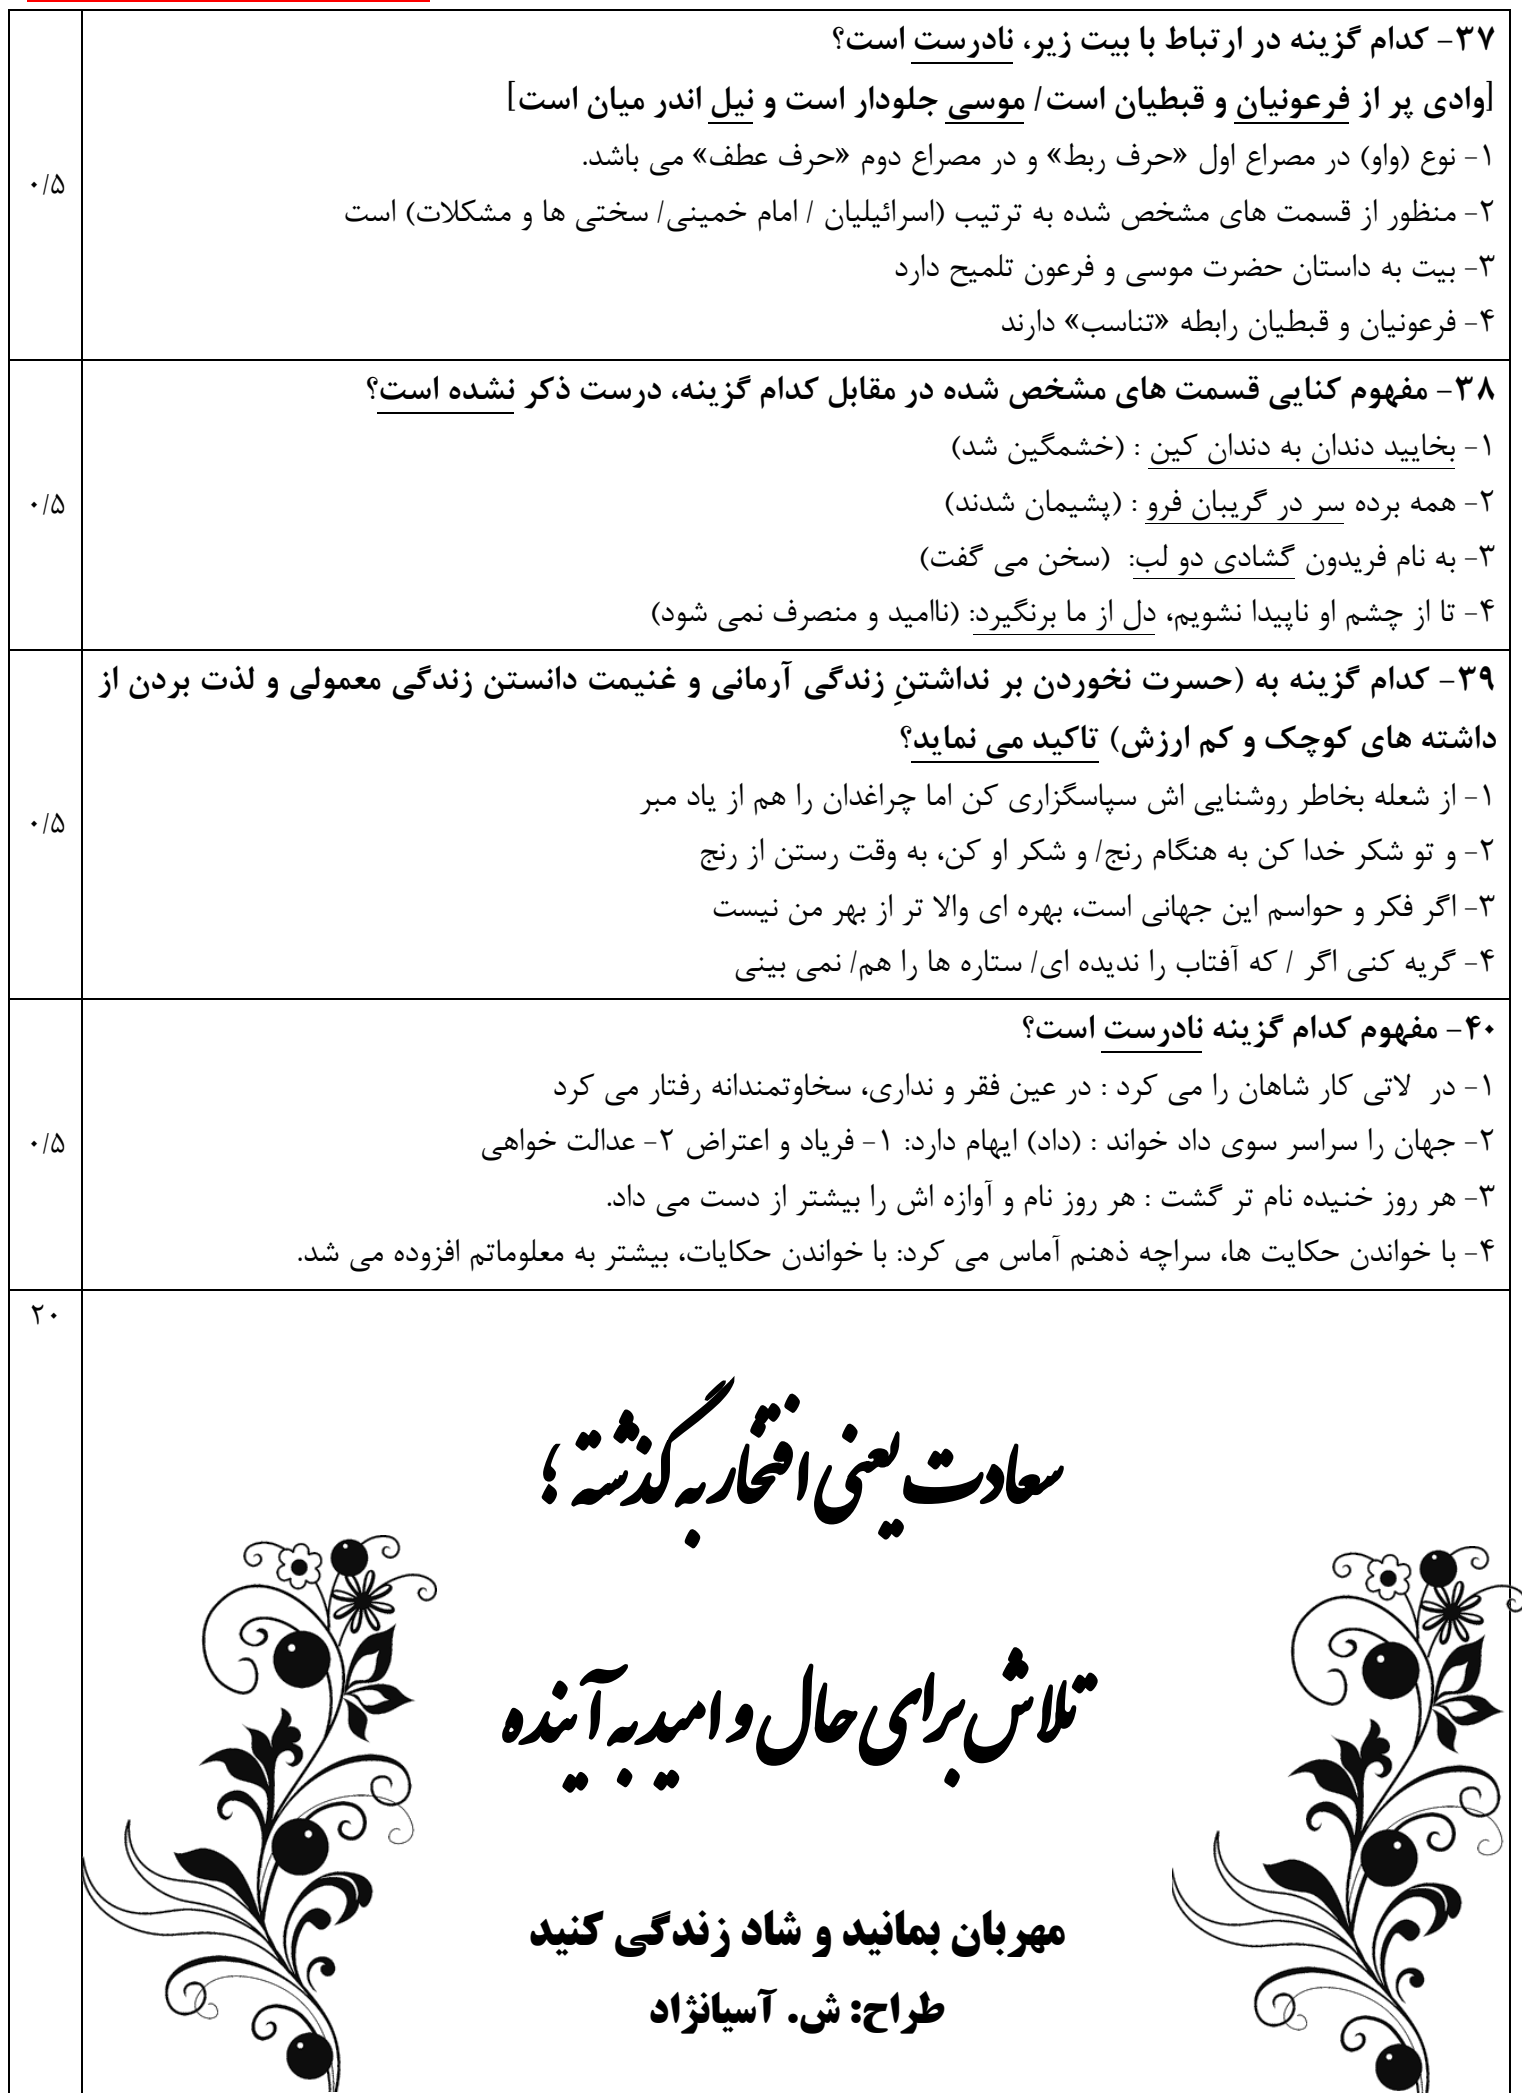 ۳۷- کدام گزینه در ارتباط با بیت زیر، نادرست است؟
[وادی پر از فرعونیان و قبطیان است/ موسی جلودار است و نیل اندر میان است]
۱- نوع (واو) در مصراع اول «حرف ربط» و در مصراع دوم «حرف عطف» می باشد.
۲- منظور از قسمت های مشخص شده به ترتیب (اسرائیلیان / امام خمینی/ سختی ها و مشکلات) است
۳- بیت به داستان حضرت موسی و فرعون تلمیح دارد
۴- فرعونیان و قبطیان رابطه «تناسب» دارند
۰/۵
۳۸- مفهوم کنایی قسمت های مشخص شده در مقابل کدام گزینه، درست ذکر نشده است؟
۱- بخایید دندان به دندان کین : (خشمگین شد)
۲- همه برده سر در گریبان فرو : (پشیمان شدند)
۳- به نام فریدون گشادی دو لب: (سخن می گفت)
۴- تا از چشم او ناپیدا نشویم، دل از ما برنگیرد: (ناامید و منصرف نمی شود)
۰/۵
۳۹- کدام گزینه به (حسرت نخوردن بر نداشتنِ زندگی آرمانی و غنیمت دانستن زندگی معمولی و لذت بردن از
داشته های کوچک و کم ارزش) تاکید می نماید؟
۱- از شعله بخاطر روشنایی اش سپاسگزاری کن اما چراغدان را هم از یاد مبر
۲- و تو شکر خدا کن به هنگام رنج/ و شکر او کن، به وقت رستن از رنج
۳- اگر فکر و حواسم این جهانی است، بهره ای والا تر از بهر من نیست
۴- گریه کنی اگر / که آفتاب را ندیده ای/ ستاره ها را هم/ نمی بینی
۰/۵
۴۰- مفهوم کدام گزینه نادرست است؟
۱- در لاتی کار شاهان را می کرد : در عین فقر و نداری، سخاوتمندانه رفتار می کرد
۲- جهان را سراسر سوی داد خواند : (داد) ایهام دارد: ۱- فریاد و اعتراض ۲- عدالت خواهی
۳- هر روز خنیده نام تر گشت : هر روز نام و آوازه اش را بیشتر از دست می داد.
۴- با خواندن حکایت ها، سراچه ذهنم آماس می کرد: با خواندن حکایات، بیشتر به معلوماتم افزوده می شد.
۰/۵
۲۰
سعادت یعنی افتخار به گذشته ؛
تلاش برای حال و امید به آینده
مهربان بمانید و شاد زندگی کنید
طراح: ش. آسیانژاد